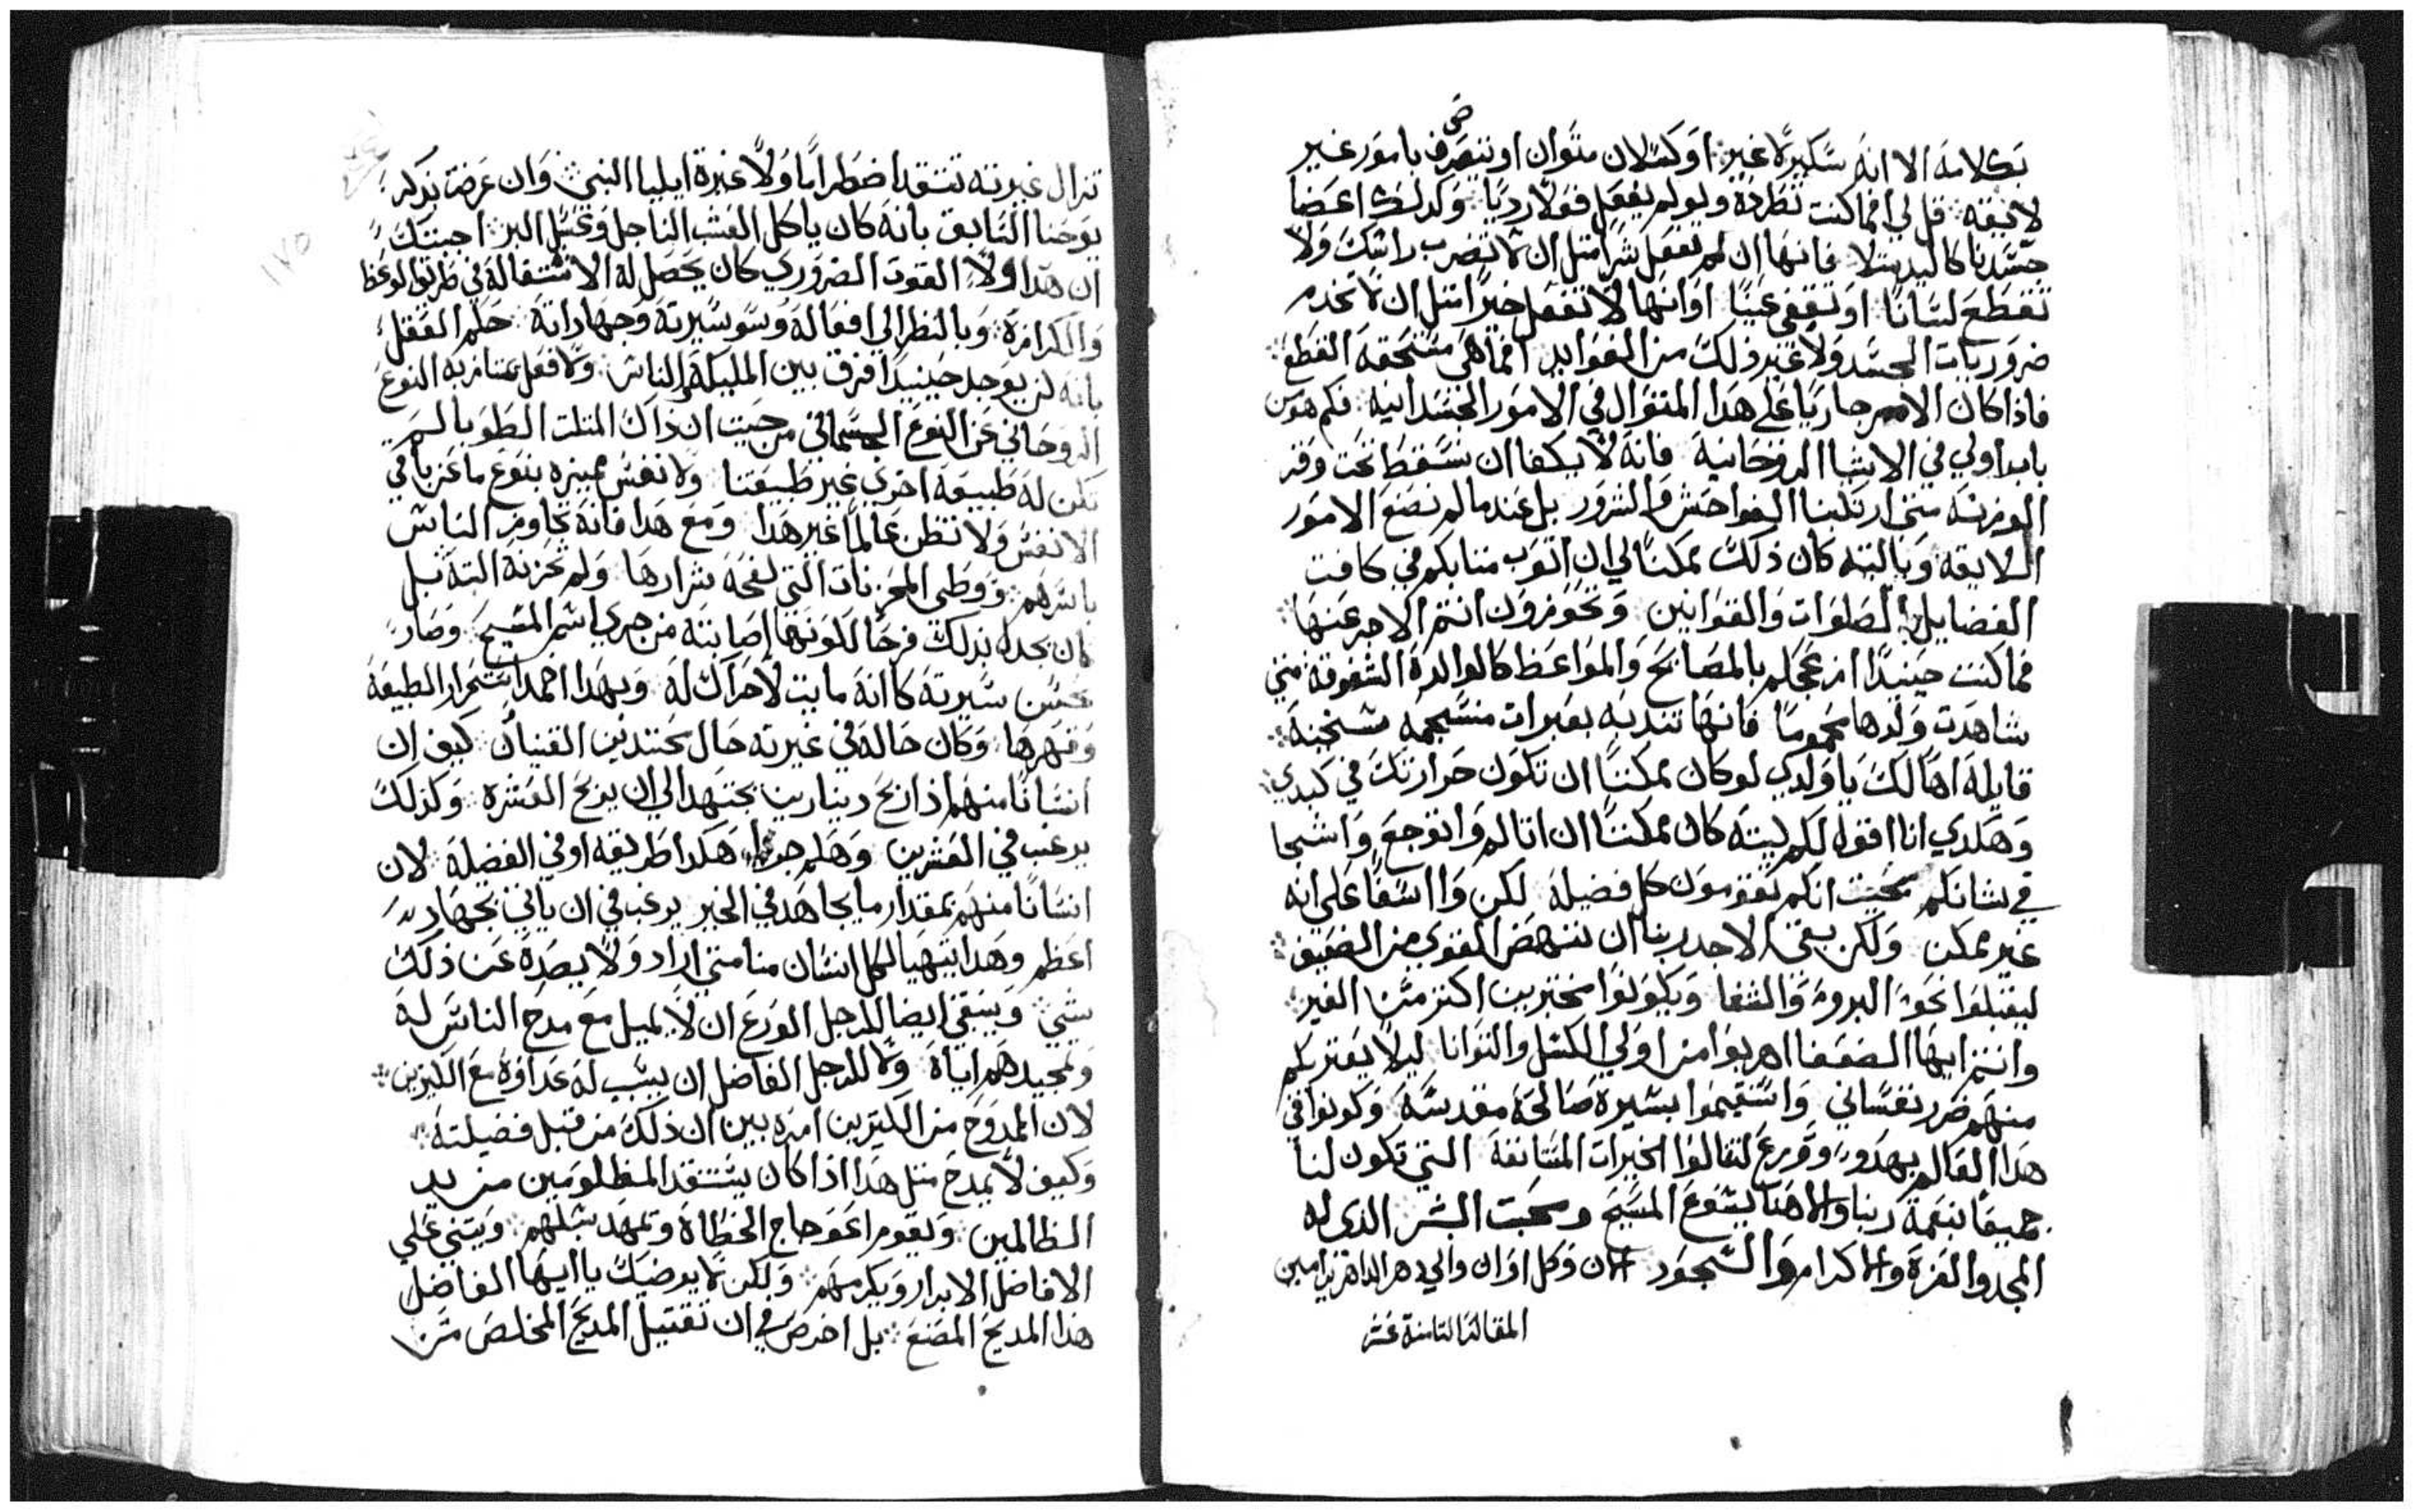 بكلامه الا انه سكيرًا غير او كسلان متوان او يتصرف بامور غير
لايقه قل لي افما كنت تطرده ولو لم يفعل فعلًا رديًا وكدلك اعضا
جسدنا كاليد مثلا فانها ان لم تفعل شرًا مثل ان لا تضرب راسك ولا
تقطع لسانًا او تقفي عينًا اوانها لا تفعل خيرًا مثل ان لا تخدم
ضروريات الجسد ولا غير ذلك من الفوايد افما هي مستحقه القطع
فاذا كان الامر جاريًا على هدا المنوال في الامور الجسدانيه فكم هو من
باب اولي في الاشيا الروحانيه فانه لا يكفا ان نسقط تحت وقر
الوزنه متي ارتكبنا الفواحش والشرور بل عندما لم نصنع الامور
اللايقه وباليته كان ذلك ممكنًا لي ان اتوب منابكم في كافت
الفضايل والصلوات والقوانين وتحوزون انتم الاجر عنها
فما كنت حينيدًا ازعجكم بالمصابح والمواعظ كالوالدة الشفوقه متي
شاهدت ولدها محمومًا فانها تندبه بعبرات منسجمه مشنجنه
قايلة اها لك يا ولدي لو كان ممكنًا ان تكون حرارتك في كبدي
وهكدي انا اقول لكم ليته كان ممكنًا ان اتالم واتوجع واشجا
في شانكم بحيث انكم تقومون كل فضيلة لكن وا اسفًا على انه
غير ممكن ولكن بقي الاجدر بنا ان ننهض القوي من الضعيف
ليقبلوا نحو البروء والشفا ويكونوا مختربين اكتر من الغير
وانتم ايها الضعفا اهربوا من اولي الكسل والتوانا ليلا يعتريكم
منهم ضرر نفساني واستقيموا بسيرة صالحة مقدسه وكونوا في
هدا العالم بهدو وورع لتنالوا الخيرات المستانفة التي تكون لنا
جميعًا بنعمة ربنا والاهنا يشوع المسيح ومحبت البشر الدي له
المجد والعزة والاكرام والسجود الان وكل اوان والي دهر الداهرين امين
المقالة التامنة عشر
تزال غيرته تتقد اضطرامًا ولا غيرة ايليا النبي وان عرضت بدكر
يوحنا السابق بانه كان ياكل العشب الناجل وعسل البر اجبتك
ان هدا ولا القوت الضروري كان يحصل له الاشتغاله في طريق الوعظ
والكرازة وبالنظر الي افعاله وسمو سيرته وجهاداته حكم العقل
بانه لن يوجد حينيدًا فرق بين المليكة والناس ولا فعل يمتاز به النوع
الروحاني عن النوع الجسماني من حيث ان ذاك المتلت الطوبا لم
تكن له طبيعة اخري غير طبيعتنا ولا نفس مميزه بنوع ما عن باقي
الانفس ولا نظن عالمًا غير هدا ومع هدا فانه تجاوز الناس
باسرهم ووطي المحزنات التي لفحه شرارها ولم تحزنه البتة بل
كان يجدل بدلك فرحًا لكونها اصابته من جري اسم المسيح وصار
بحسن سيرته كاانه مايت لاحراك له وبهدا اخمد استمرار الطبيعة
وقهرها وكان حاله في غيرته حال مجتهدين القنيان كيف ان
انسانًا منهم اذا ربح دينارين يجتهد الي ان يربح العشره وكذلك
يرغب في العشرين وهلم جرا هكدا طريقه اوفي الفضيلة لان
انسانًا منهم بمقدار ما يجاهد في الخير يرغب في ان ياتي بجهاد
اعظم وهدا يتهيا لكل انسان منا متي اراد ولا يصده عن ذلك
شي وينبغي ايضا للرجل الورع ان لا يميل مع مدح الناس له
وتمجيدهم اياه ولا للرجل الفاضل ان يسبب له عداوة مع الكتيرين
لان الممدوح من الكتيرين امره بين ان ذلك من قبل فضيلته
وكيف لا يمدح متل هدا اذا كان يستنقد المظلومين من يد
الظالمين ويقوم اعوجاج الخطاة ويمهد سبلهم ويتني علي
الافاضل الابرار ويكرمهم ولكن لا يرضيك يا ايها الفاضل
هدا المديح المصنع بل احرص في ان تقتبل المديح المخلص من